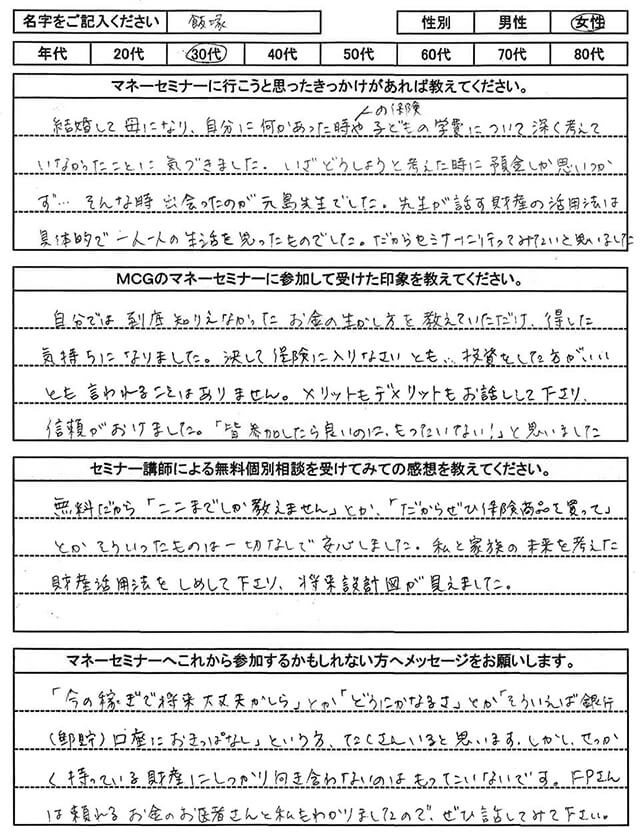 名字をご記入ください 飯塚 性別 男性 女性
年代 20代 30代 40代 50代 60代 70代 80代
マネーセミナーに行こうと思ったきっかけがあれば教えてください。
の保険
結婚して母になり、自分に何かあった時や子どもの学費について深く考えて
いなかったことに気づきました。いざどうしようと考えた時に預金しか思いつか
ず… そんな時出会ったのが元島先生でした。先生が話す財産の活用法は
具体的で一人一人の生活を思ったものでした。だからセミナーに行ってみたいと思いました
MCGのマネーセミナーに参加して受けた印象を教えてください。
自分では到底知りえなかったお金の生かし方を教えていただけ、得した
気持ちになりました。決して保険に入りなさいとも… 投資をした方がいい
とも言われることはありません。メリットもデメリットもお話しして下さり、
信頼がおけました。「皆参加したら良いのに、もったいない!」と思いました
セミナー講師による無料個別相談を受けてみての感想を教えてください。
無料だから「ここまでしか教えません」とか、「だからぜひ保険商品を買って」
とかそういったものは一切なしで安心しました。私と家族の未来を考えた
財産活用法をしめして下さり、将来設計図が見えました。
マネーセミナーへこれから参加するかもしれない方へメッセージをお願いします。
「今の稼ぎで将来大丈夫かしら」とか「どうにかなるさ」とか「そういえば銀行
(郵貯)口座におきっぱなし」という方、たくさんいると思います。しかし、せっか
く持っている財産にしっかり向き合わないのはもったいないです。FPさん
は頼れるお金のお医者さんと私もわかりましたので、ぜひ話してみて下さい。